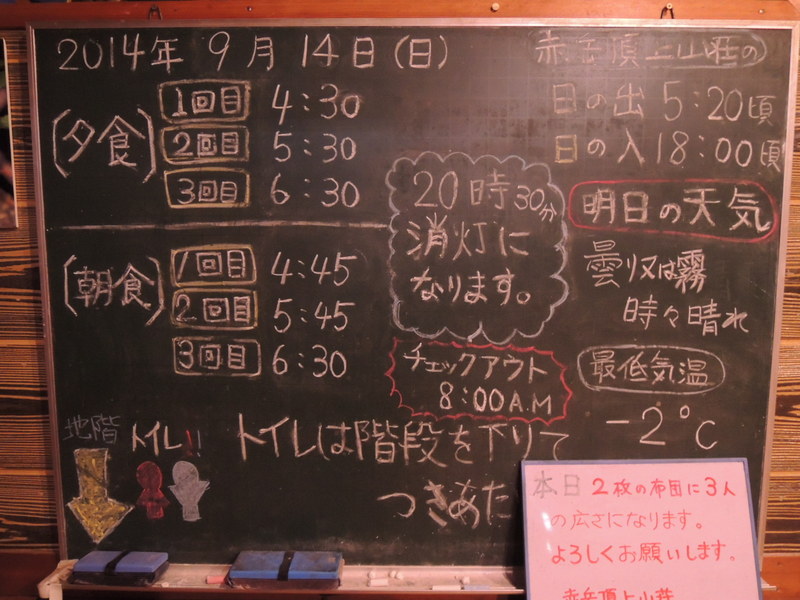 2014年 9月 14日(日)
(夕食)
1回目 4:30
2回目 5:30
3回目 6:30
(朝食)
1回目 4:45
2回目 5:45
3回目 6:30
20時30分
消灯に
なります。
チェックアウト
8:00A.M
赤岳頂上山荘の
日の出 5:20頃
日の入18:00頃
明日の天気
曇り又は霧
時々晴れ
最低気温
-2℃
地階 トイレ!!
トイレは階段を下りて
つきあた
本日 2枚の布団に3人
の広さになります。
よろしくお願いします。
赤岳頂上山荘